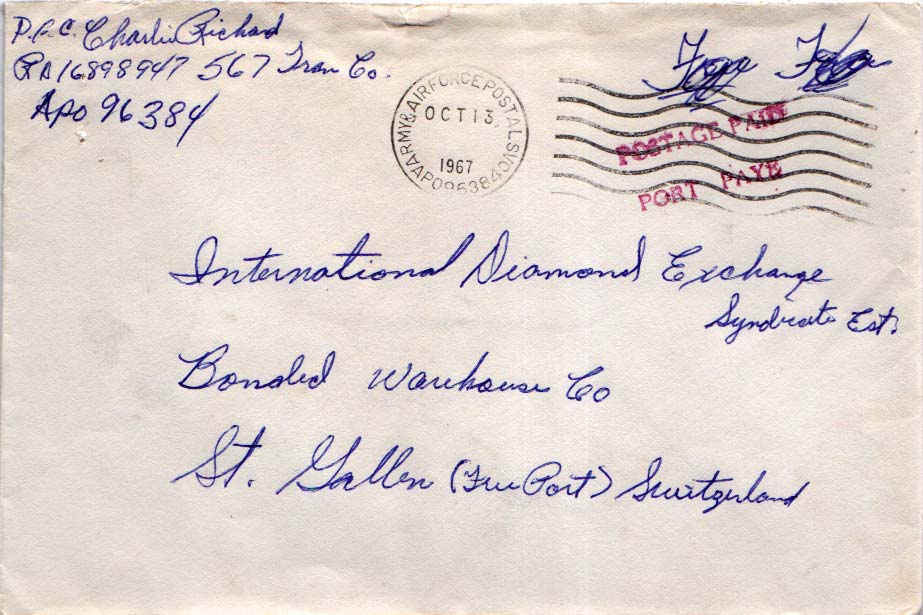 P.F.C. Charlie Richard
RA16898947 567 Tran Co.
APO 96384
ARMY & AIR FORCE POSTAL SVC
OCT 13
1967
APO 96384
POSTAGE PAID
PORT PAYE
International Diamond Exchange
Syndicate Est.
Bonded Warehouse Co
St. Gallen (Free Port) Switzerland